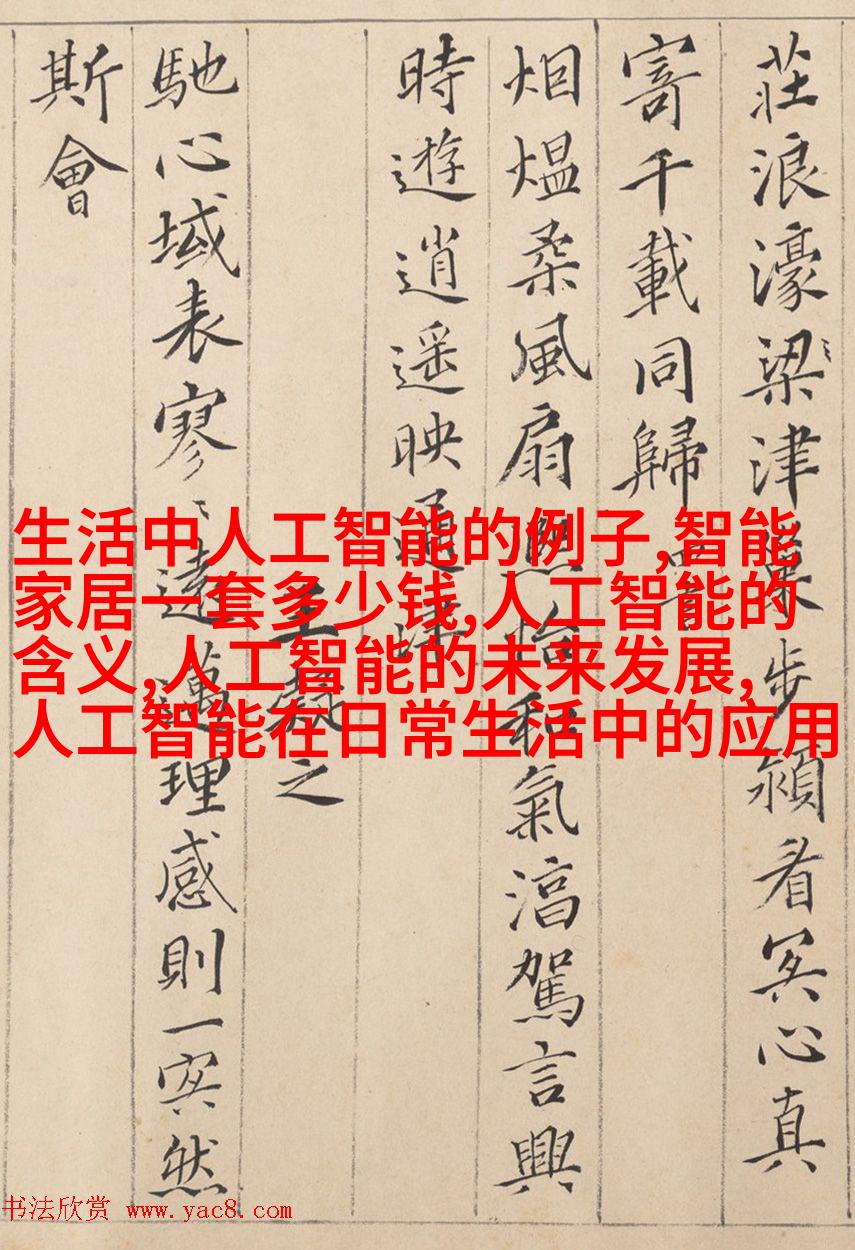 莊浪濠梁〻津巢步潁看冥心真
寄千載同歸
烟熅柔風扇熙怡和氣湻駕言興
時遊逍遥映通津
王凝之
馳心域表寥〻遠邁理感則一冥然
斯會
生活中人工智能的例子,智能
家居一套多少钱,人工智能的
含义,人工智能的未来发展,
人工智能在日常生活中的应用
书法欣赏 www.yac8.com